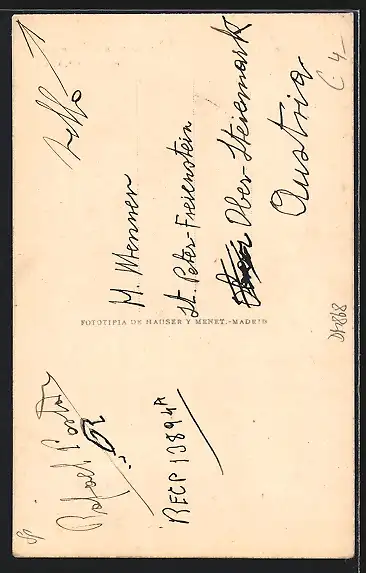 sello
M. Mennen
St. Peter-Freienstein
Ober-Steiermark
Austria
C 4_
FOTOTIPIA DE HAUSER Y MENET.-MADRID
Rafael
RECP 13894A
Sp